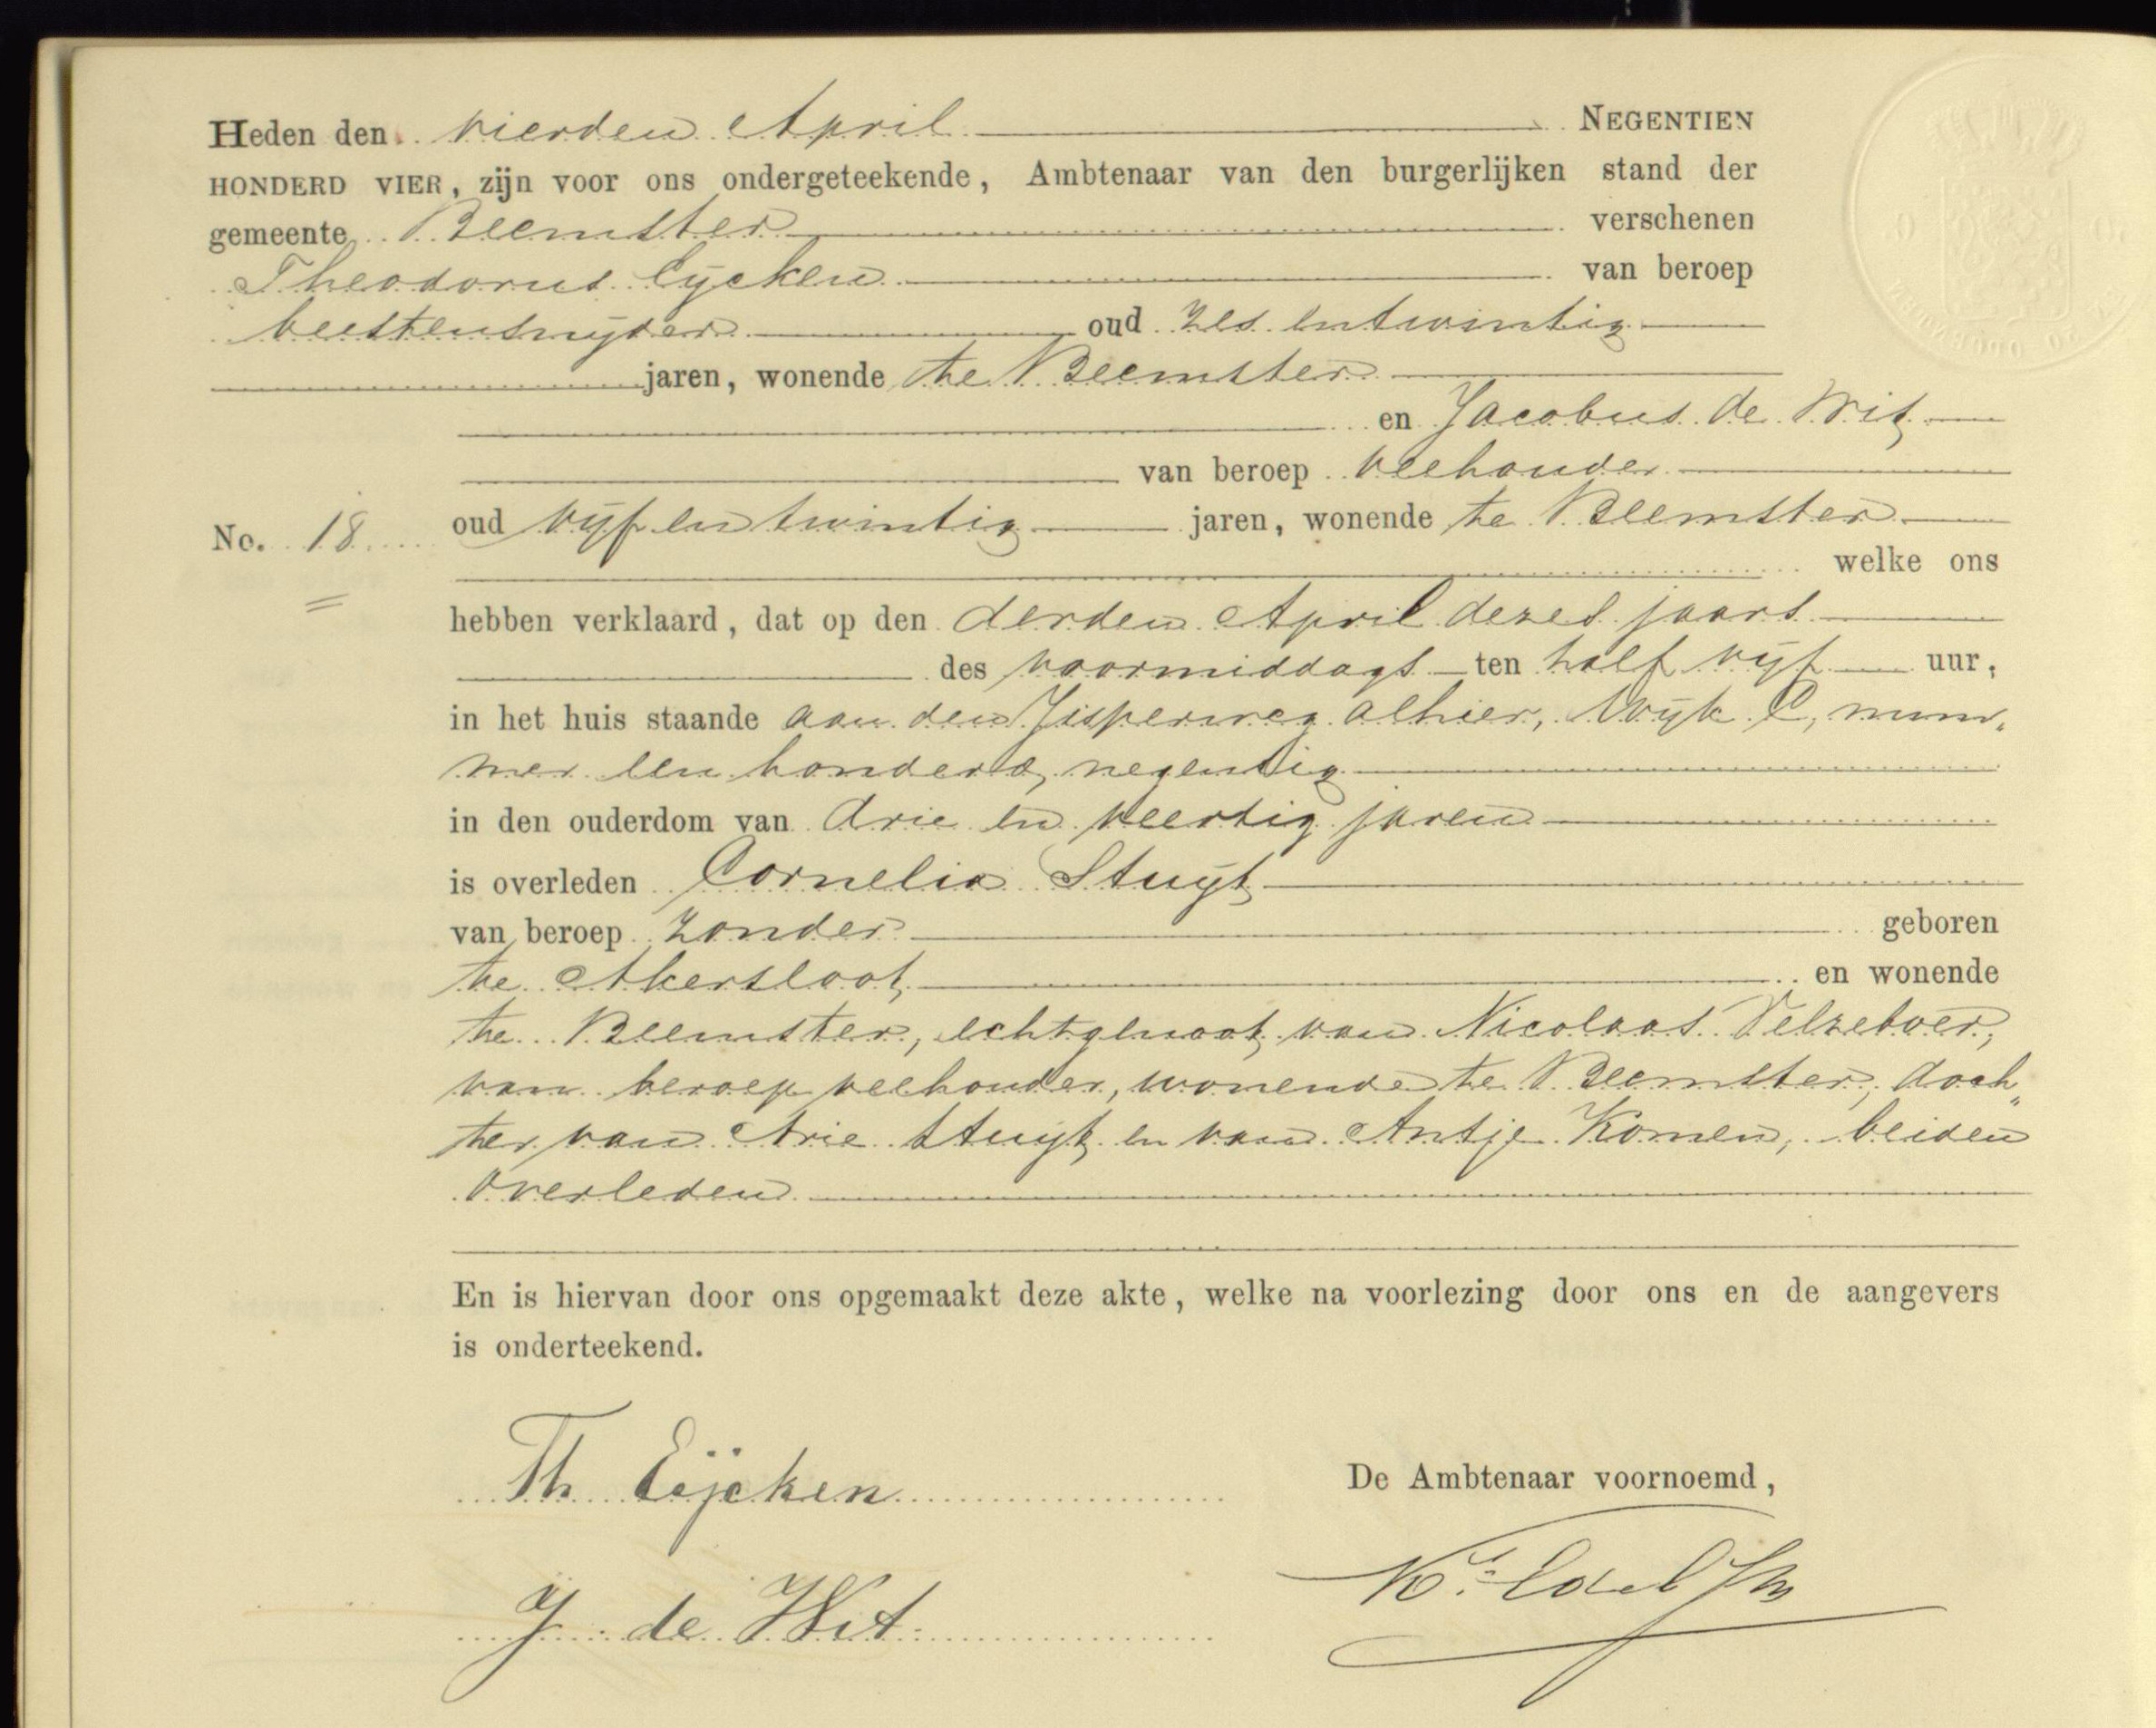 Heden den vierden April NEGENTIEN
HONDERD VIER, zijn voor ons ondergeteekende, Ambtenaar van den burgerlijken stand der
gemeente Beemster verschenen
Theodorus Eijcken van beroep
beestensnijder oud zes entwintig
jaren, wonende te Beemster
en Jacobus de Wit
van beroep veehouder
No. 18 oud vijf en twintig jaren, wonende te Beemster
welke ons
hebben verklaard, dat op den derden April dezes jaars
des voormiddags ten half vijf uur,
in het huis staande aan den Jisperweg alhier, Wijk C, num„
mer een honderd negentig
in den ouderdom van drie en veertig jaren
is overleden Cornelia Stuijt
van beroep zonder geboren
te Akersloot en wonende
te Beemster, echtgenoot van Nicolaas Velzeboer,
van beroep veehouder, wonende te Beemster, doch„
ter van Arie Stuijt en van Antje Komen, beiden
overleden
En is hiervan door ons opgemaakt deze akte, welke na voorlezing door ons en de aangevers
is onderteekend.
Th Eijcken
De Ambtenaar voornoemd,
J de Wit